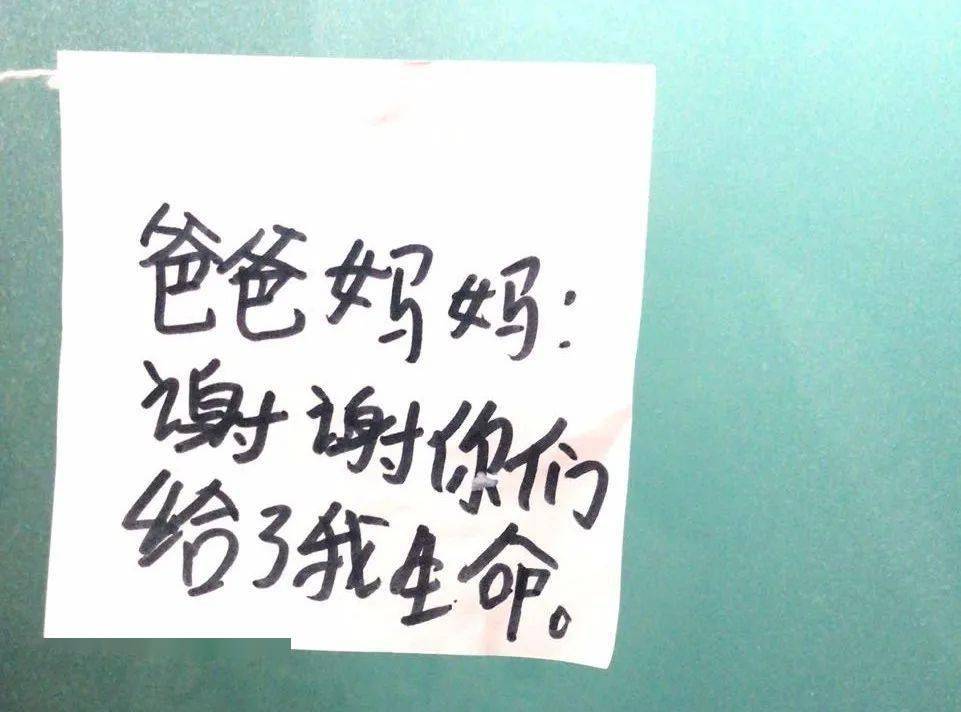 爸爸妈妈:
谢谢你们
给了我生命。